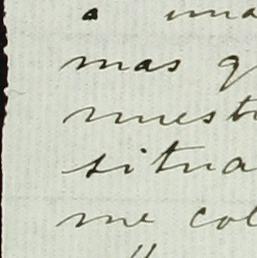 a una
mas q
nuest
situa
me col